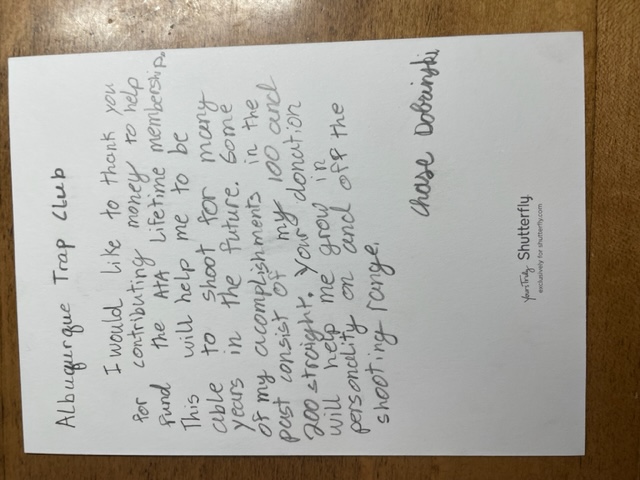 Albuquerque Trap Club
I would like to thank you
for contributing money to help
fund the ATA Lifetime membership.
This will help me to be
able to shoot for many
years in the future. Some
of my acomplishments in the
past consist of my 100 and
200 straight. Your donation
will help me grow in
personality on and off the
shooting range.
Chase Dobrinski
yours truly, Shutterfly.
exclusively for shutterfly.com